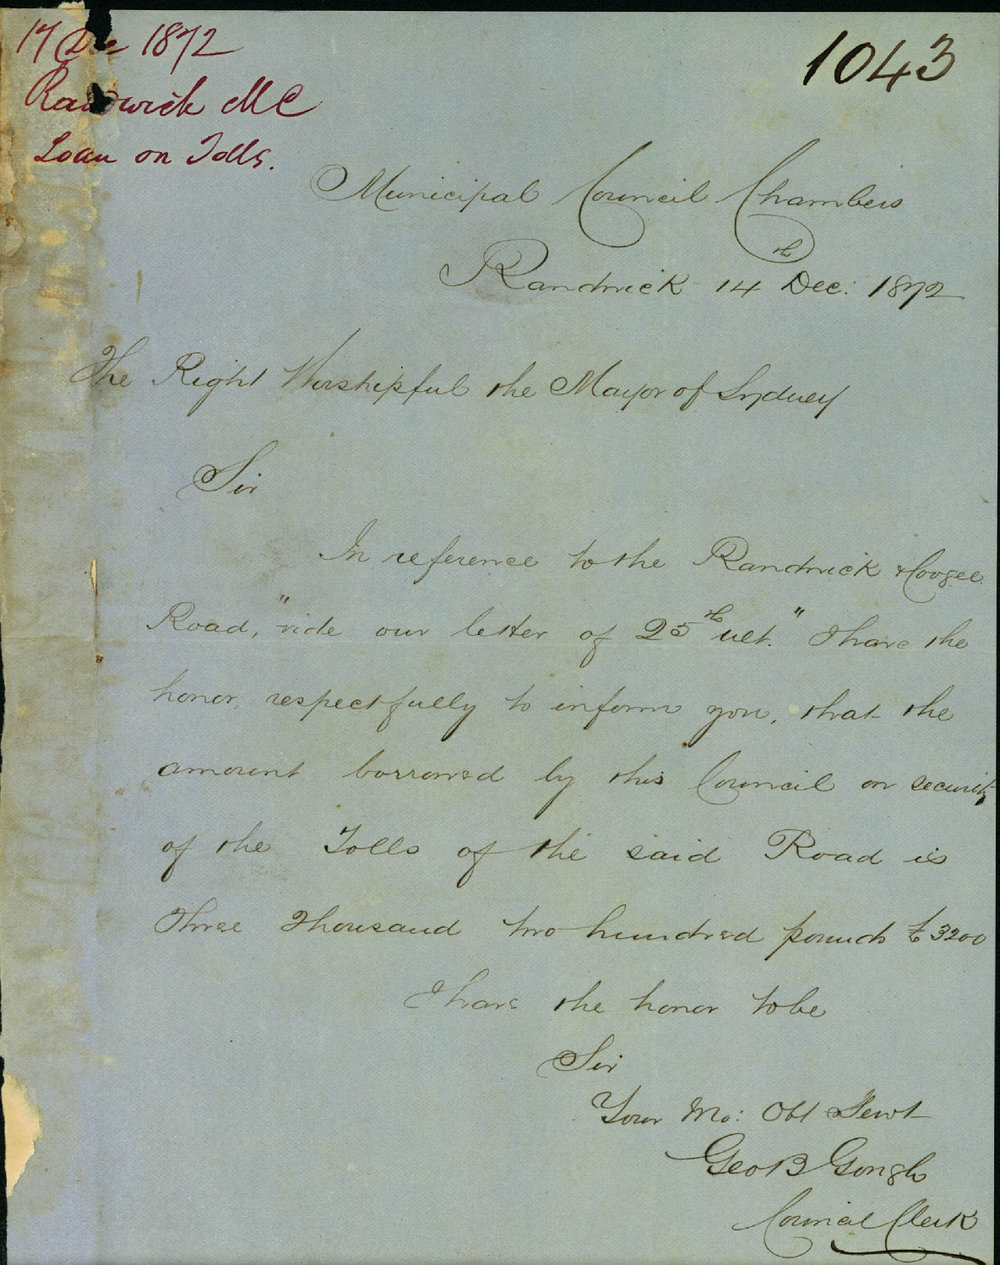 17 Dec 1872
Randwick MC
Loan on Tolls.
1043
Municipal Council Chambers
Randwick 14th Dec: 1872
The Right Worshipful the Mayor of Sydney
Sir
In reference to the Randwick & Coogee
Road, "vide our letter of 25th ult." I have the
honor, respectfully to inform you, that the
amount borrowed by this Council on security
of the Tolls of the said Road is
Three Thousand two hundred pounds £3200
I have the honor to be
Sir
Your Mo: Obt Servt
Geo B Gough
Council Clerk